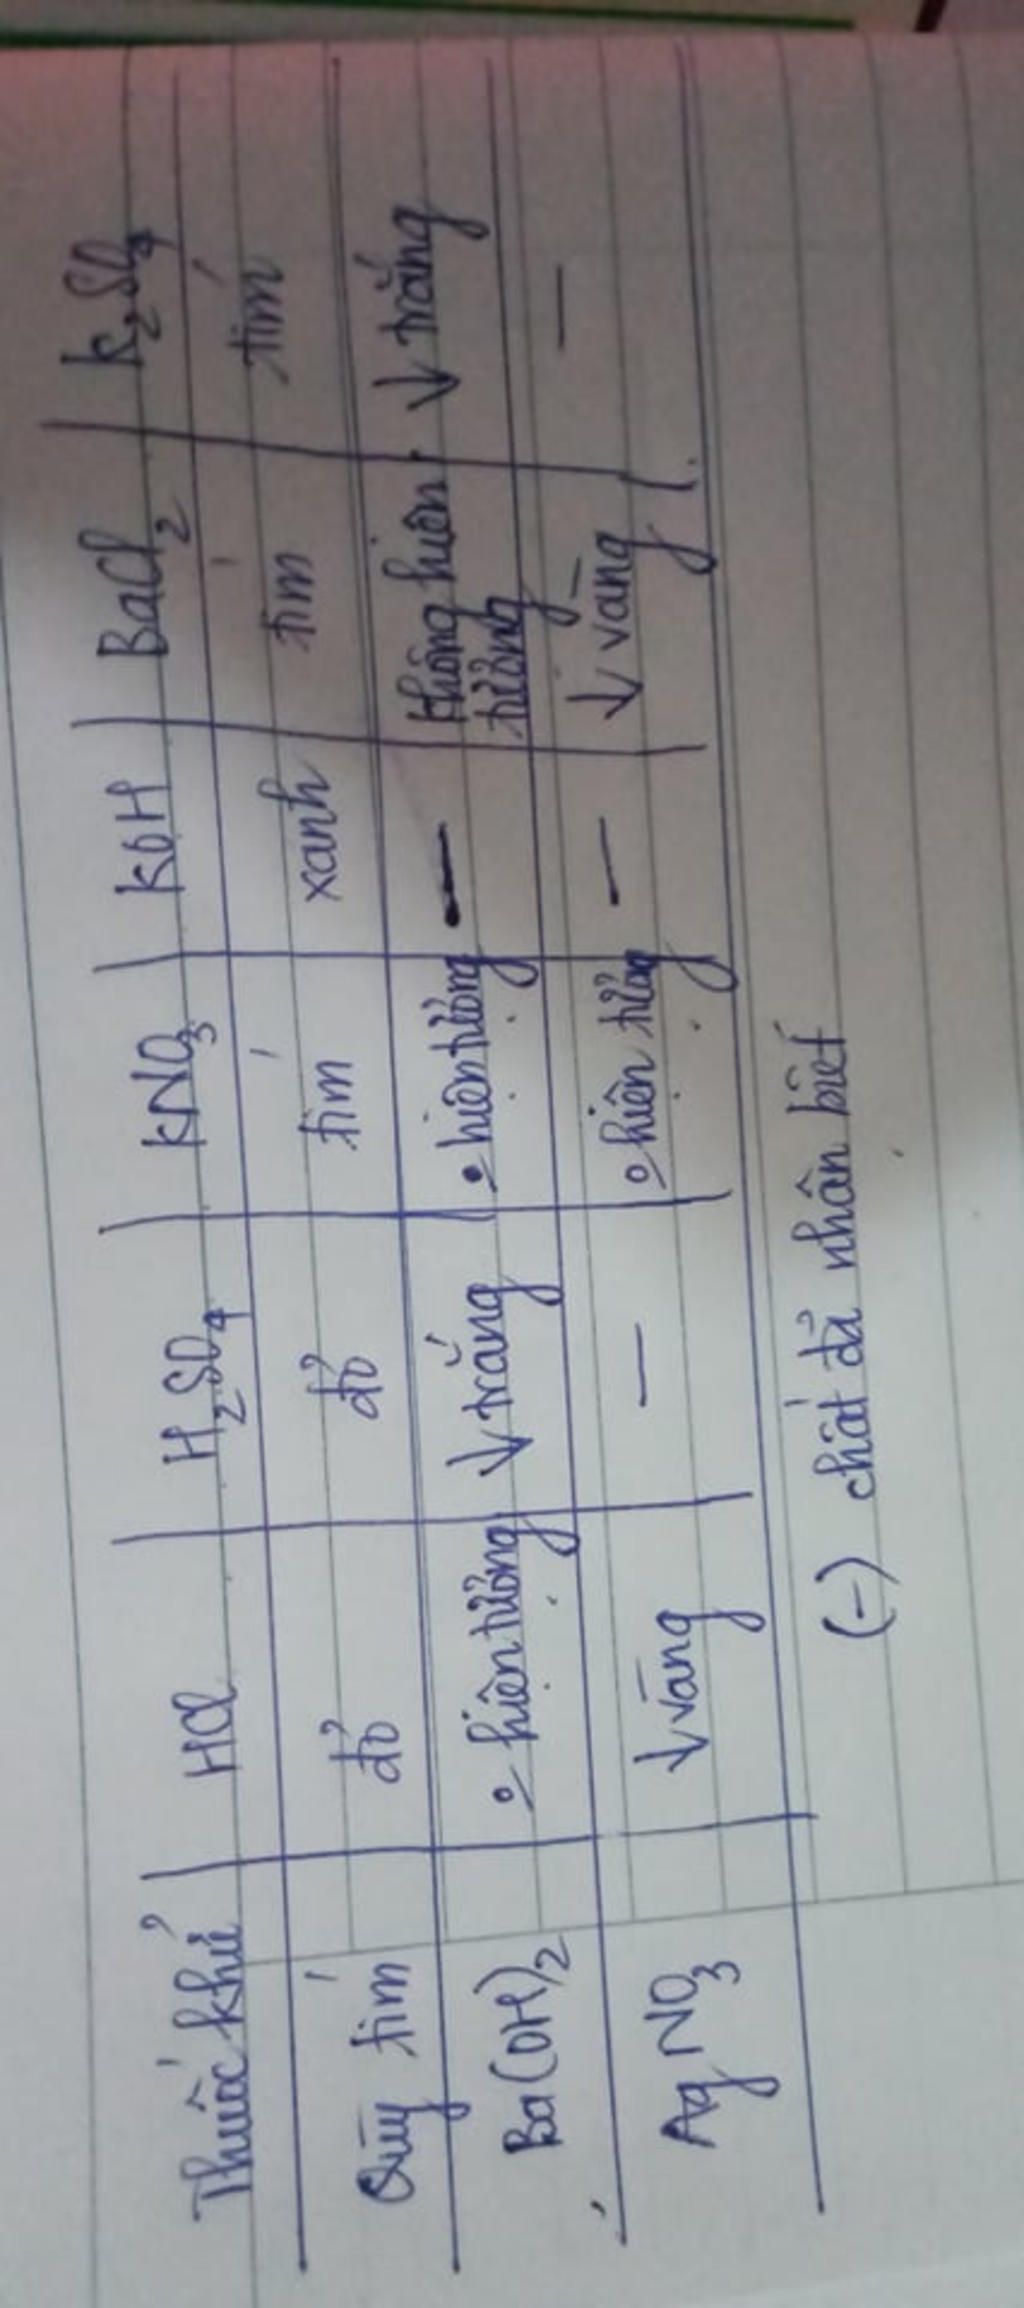 Thuốc thử HCl H₂SO₄ KNO₃ KOH BaCl₂ K₂SO₄
Quỳ tím đỏ đỏ tím xanh tím tím
Ba(OH)₂ o hiện tượng ↓ trắng o hiện tượng — không hiện tượng ↓ trắng
AgNO₃ ↓ vàng — o hiện tượng — ↓ vàng —
(-) chất đã nhận biết